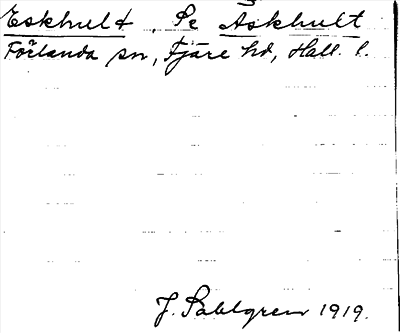 Eskhult, Se Äskhult
Förlanda sn, Fjäre hd, Hall. l.
J. Sahlgren 1919.